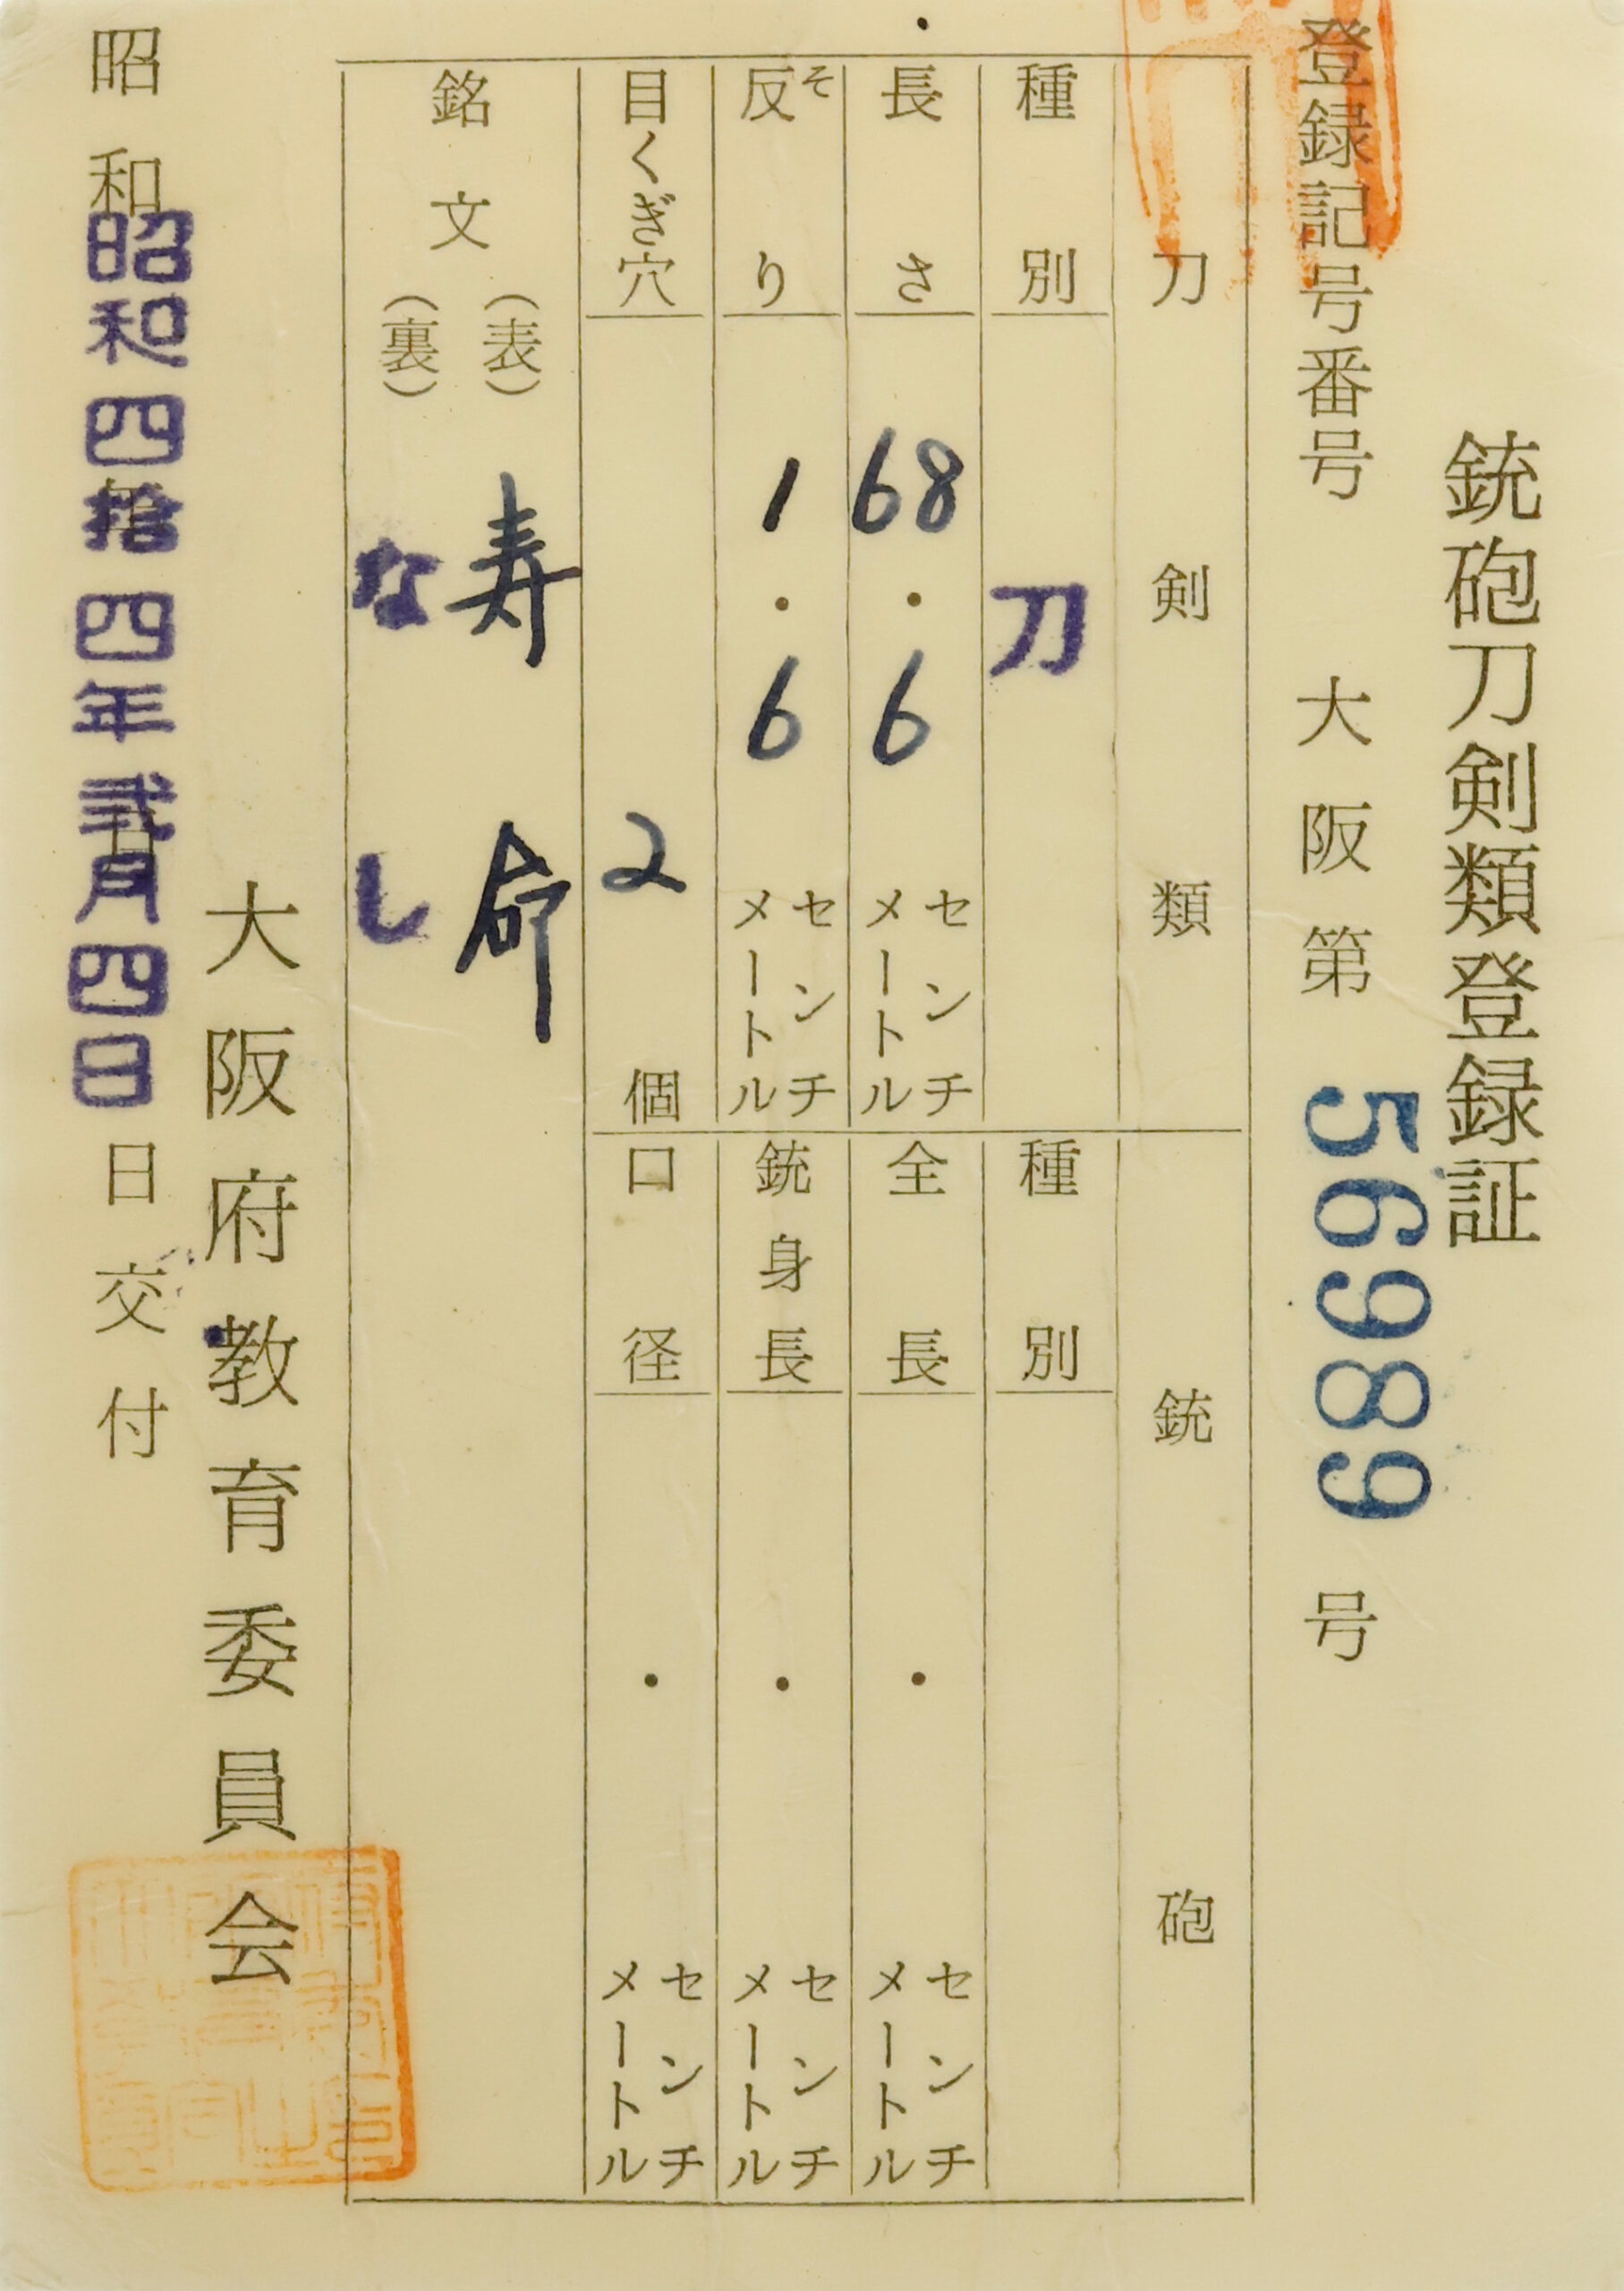 銃砲刀剣類登録証
登録記号番号 大阪第 56989 号
刀剣類
種別 刀
長さ 68.6 センチメートル
反り そ 1.6 センチメートル
目くぎ穴 2 個
銘文
(表) 寿命
(裏) なし
銃砲
種別
全長 ・ センチメートル
銃身長 ・ センチメートル
口径 ・ センチメートル
大阪府教育委員会
昭和 昭和四拾四年弐月四日 日交付